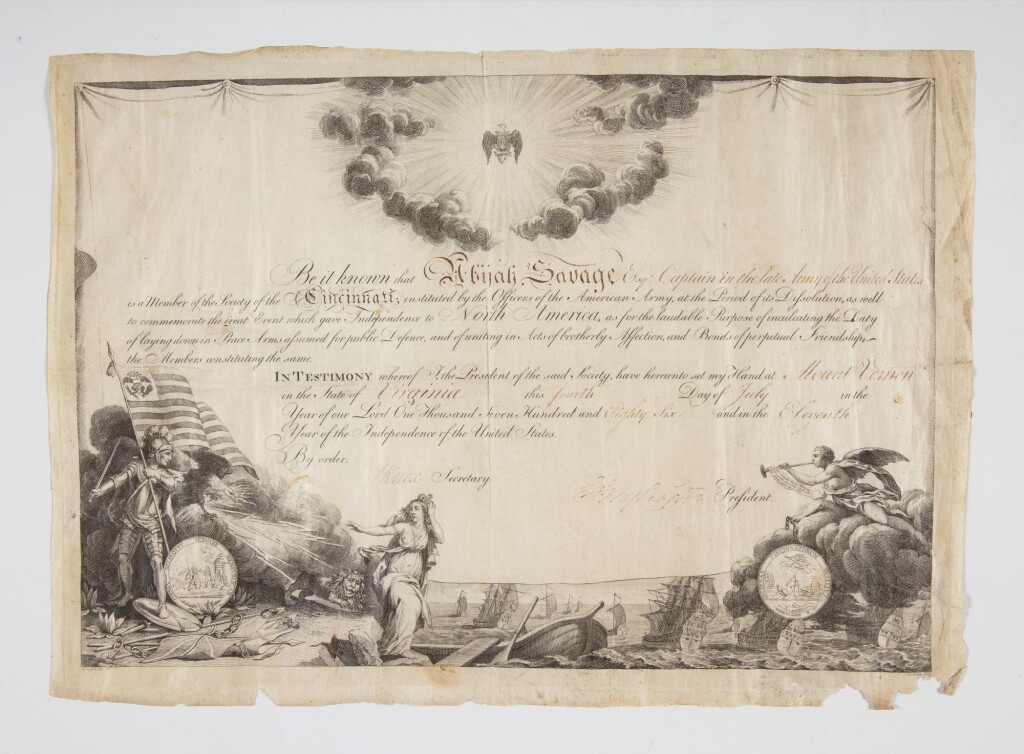 Be it known that Abijah Savage Esqr. Captain in the late Army of the United States
is a Member of the Society of the Cincinnati; instituted by the Officers of the American Army, at the Period of its Dissolution, as well
to commemorate the great Event which gave Independence to North America, as for the laudable Purpose of inculcating the Duty
of laying down in Peace Arms assumed for public Defence, and of uniting in Acts of brotherly Affection, and Bonds of perpetual Friendship
the Members constituting the same.
In Testimony whereof I, the President of the said Society, have hereunto set my Hand at Mount Vernon
in the State of Virginia this fourth Day of July in the
Year of our Lord One Thousand Seven Hundred and Eighty Six and in the Eleventh
Year of the Independence of the United States.
By order,
Knox Secretary.
President.